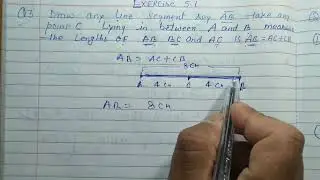 EXERCISE 5.1
Q3 Draw any line segment say AB take any
point C lying in between A and B measure
the lengths OF AB BC and AC IS AB=AC+CB
AB = AC+CB
8 Cm
A 4 Cm C 4 Cm B
AB = 8 Cm